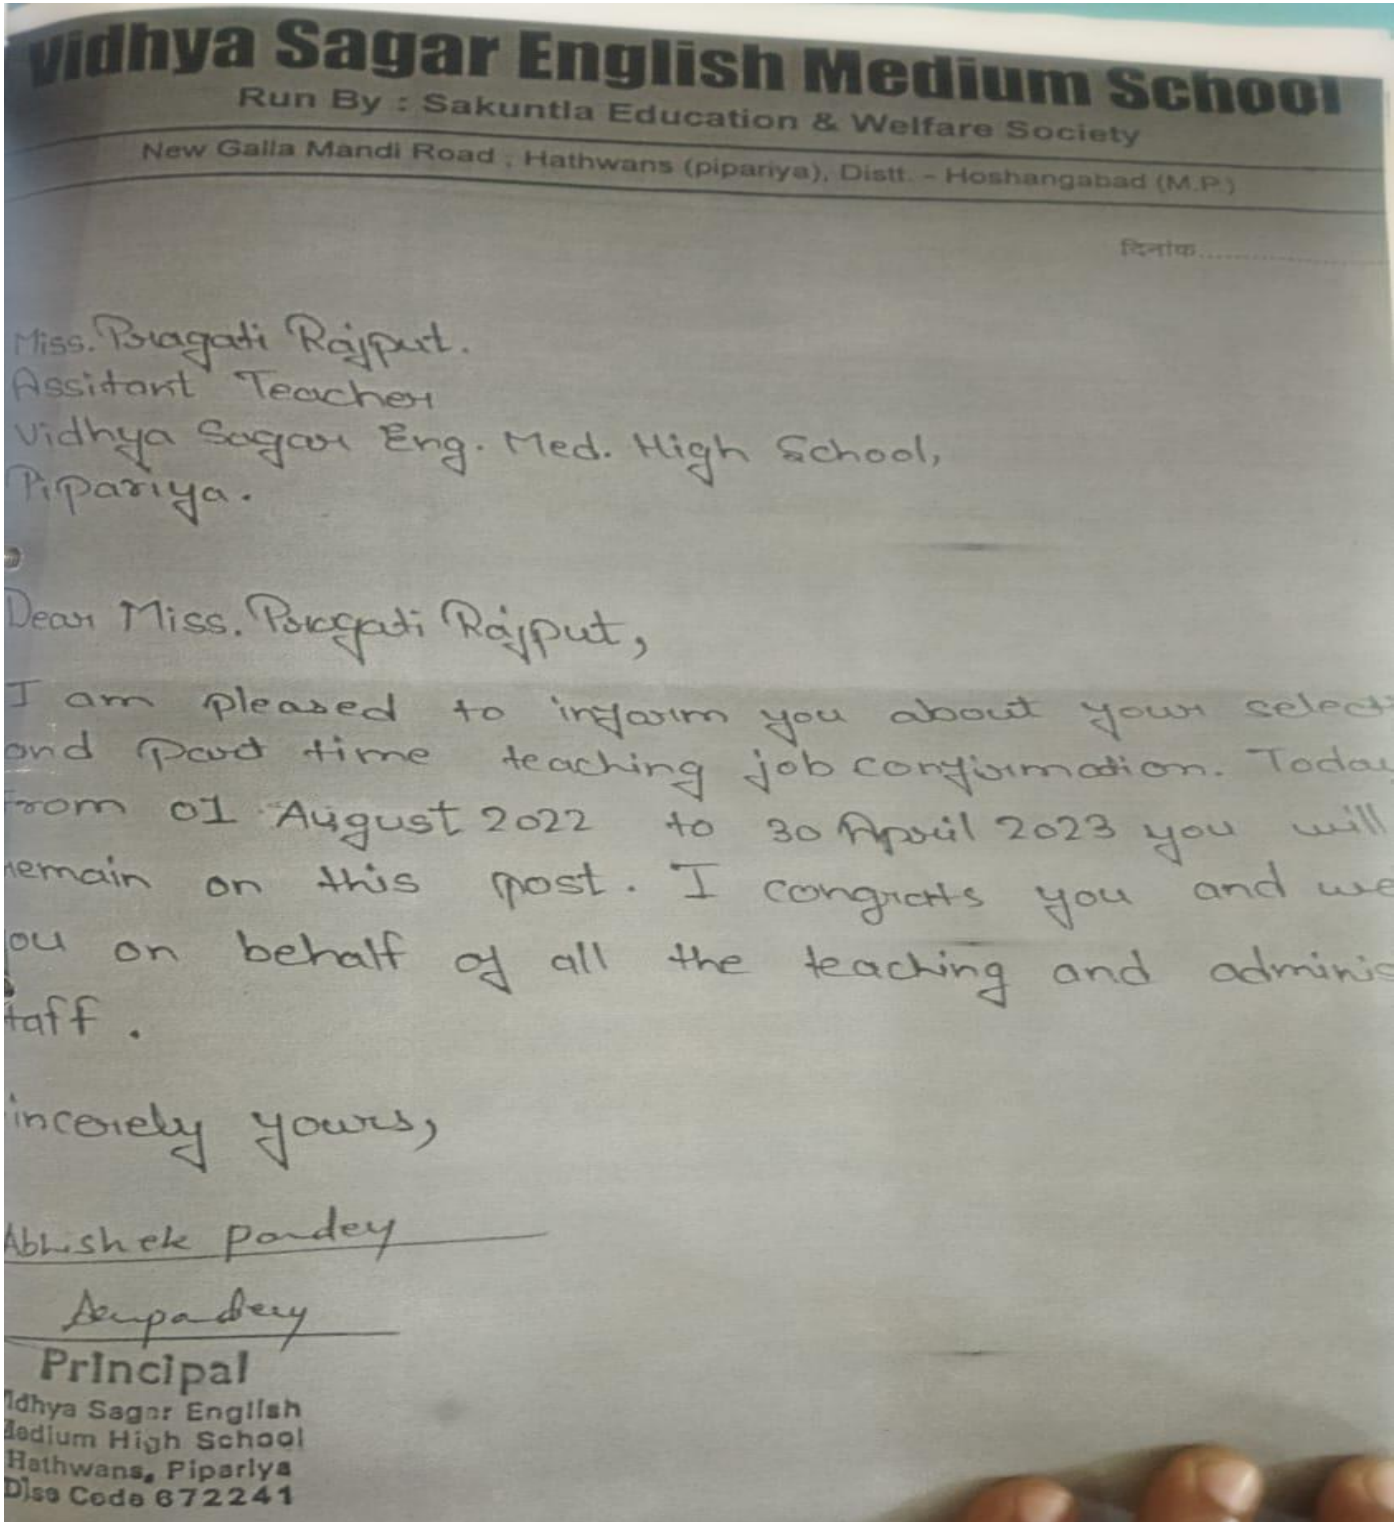 Vidhya Sagar English Medium School
Run By : Sakuntla Education & Welfare Society
New Galla Mandi Road , Hathwans (pipariya), Distt. - Hoshangabad (M.P.)
दिनांक..............................
Miss. Pragati Rajput.
Assitant Teacher
Vidhya Sagar Eng. Med. High School,
Pipariya.
Dear Miss. Pragati Rajput,
I am pleased to inform you about your selecti
and part time teaching job confirmation. Today
from 01 August 2022 to 30 April 2023 you will
remain on this post. I congrats you and we
ou on behalf of all the teaching and adminis
taff.
incerely yours,
Abhishek Pandey
Principal
idhya Sagar English
Medium High School
Hathwans, Pipariya
Dise Code 672241